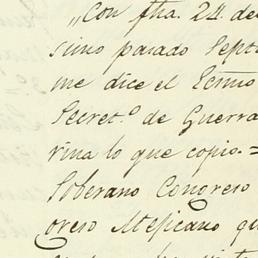 „Con fha. 22. de
simo pasado Sept
me dice el Ecmo
Secret.º de Guerra
rina lo que copio.=
Soberano Congreso
greso Mejicano qu